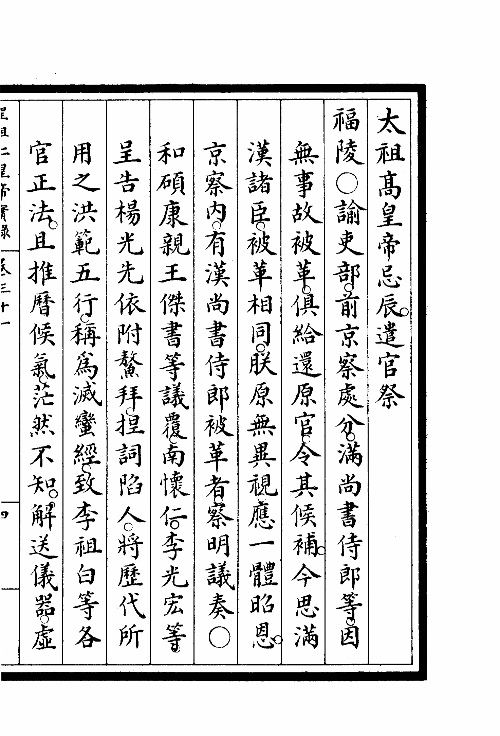 太祖髙皇帝忌辰。遣官祭
福陵○諭吏部。前京察處分。滿尚書侍郎等。因
無事故被革。俱給還原官。令其候補。今思滿
漢諸臣。被革相同。朕原無異視。應一體昭恩。
京察内。有漢尚書侍郎被革者。察明議奏○
和碩康親王傑書等議覆。南懷仁。李光宏等。
呈告楊光先依附鰲拜。捏詞陷人。將歷代所
用之洪範五行。稱爲滅蠻經。致李祖白等各
官正法。且推曆候氣。茫然不知。解送儀器。虛
卷三十一